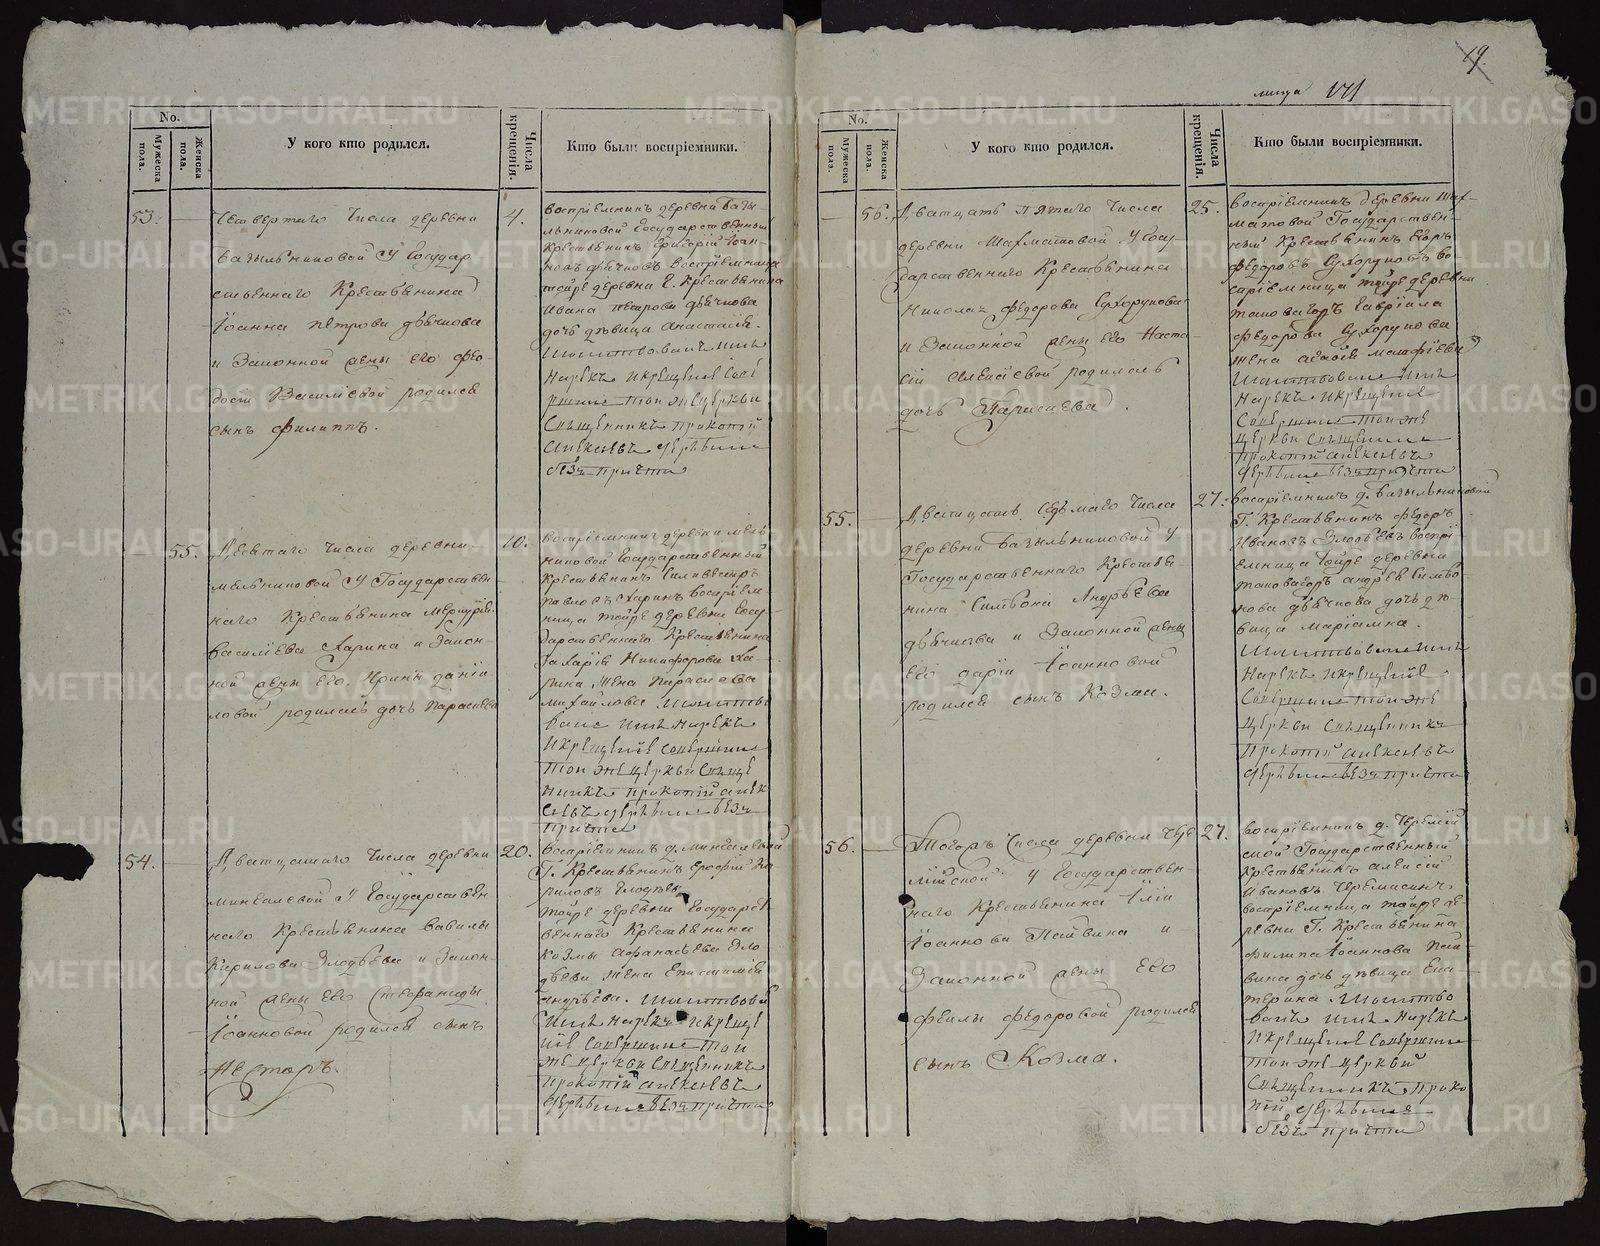 19.
лица
No.
Мужеска пола.
Женска пола.
У кого кто родился.
Числа крещенія.
Кто были воспріемники.
53.
Четвертаго числа деревни
Базыльниковой у Государ
ственнаго Крестьянина
Іоанна Петрова Дьячкова
и Законной жены его Фео
досіи Василіевой родился
сынъ Филиппъ.
4.
воспріемникъ деревни Базы-
льниковой Государственный
Крестьянинъ Григорій Іоан-
новъ Дьячковъ воспріемница
тойже деревни Г. Крестьянина
Ивана Петрова Дьячкова
дочь девица Анастасія.
Молитвовалъ имя
Нарекъ и крещеніе сове
ршилъ той же церкви
Священникъ Прокопій
Алексѣевъ
безъ причта
55.
Десятаго числа деревни
мельниковой у Государствен
наго Крестьянина Меркурія
Василіева Харина и Закон-
ной жены его Ирины Дании
ловой родилась дочь Параскева
10.
воспріемникъ деревни мель
никовой Государственный
Крестьянинъ Силивестръ
Павловъ Харинъ воспріем-
ница тойже деревни Госу-
дарственнаго Крестьянина
Захарія Никифорова Ха-
рина жена Параскева
михайлова. Молитво
валъ имя Нарекъ
и крещеніе совершилъ
той же церкви Свяще
нникъ Прокопій Алек
сѣевъ безъ
причта
54.
Дватцатаго числа деревни
мингалевой у Государствен-
наго Крестьянина Вавилы
Кирилова Злодѣева и Закон-
ной жены его Стефаниды
Іоанновой родился сынъ
Несторъ.
20.
воспріемникъ д. мингалевой
Г. Крестьянинъ Ерофій Ки
риловъ Злодѣевъ
тойже деревни Государст
веннаго Крестьянина
Козмы Афанасьева Зло
дѣева жена Епистимія
Андрѣева. Молитвовалъ
имя Нарекъ и крещe
ніе совершилъ той
же церкви Священникъ
Прокопій Алексѣевъ
безъ причта
No.
Мужеска пола.
Женска пола.
У кого кто родился.
Числа крещенія.
Кто были воспріемники.
56.
Дватцать пятаго числа
деревни Шахматовой у Госу-
дарственнаго Крестьянина
Николая Федорова Сухорукова
и Законной жены его Наста-
сіи Алексіевой родилась
дочь Параскева.
25.
воспріемникъ деревни Шах-
матовой Государствен-
ный Крестьянинъ Егоръ
Федоровъ Сухоруковъ во
спріемница тойже деревни
Гавріила
Федорова Сухорукова
жена Агафія Матфіева
Молитвовалъ имя
Нарекъ и крещеніе
Совершилъ той же
церкви Священникъ
Прокопій Алексѣевъ
безъ причта
55.
Дватцать седьмаго числа
деревни Базыльниковой у
Государственнаго Крестья-
нина Симеона Андрѣева
Дьячкова и Законной жены
его Даріи Іоанновой
родился сынъ Козма.
27.
воспріемникъ д. Базыльниковой
Г. Крестьянинъ Федоръ
Ивановъ Злодѣевъ воспрі-
емница тойже деревни
Андрѣя Симео
нова Дьячкова дочь дѣ-
вица Маріамна.
Молитвовалъ имя
Нарекъ и крещеніе
Совершилъ той же
Церкви Священникъ
Прокопій Алексѣевъ
безъ причта
56.
Тогожъ числа деревни Чере
мійской у Государствен
наго Крестьянина Иліи
Іоаннова Пайвина и
Законной жены его
Феклы Федоровой родился
сынъ Козма.
27.
воспріемникъ д. Черемій
ской Государственный
Крестьянинъ Алексій
Ивановъ Черемисинъ
воспріемница тойже де
ревни Г. Крестьянина
Филипа Іоаннова Пай-
вина дочь дѣвица Ека-
терина Молитво
валъ имя Нарекъ
и крещеніе совершилъ
той же церкви
Священникъ Проко
пій
безъ причта